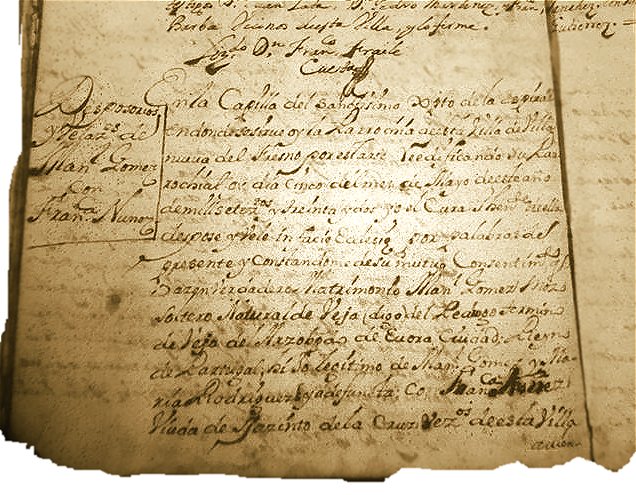 Barba Vecinos desta Villa y lo firme.
Lizdo Dn Franco Fraile
Cuesta
Desposorios
y Velazos de
Manl Gomez
con
Frana Nuñez
En la Capilla del Santissimo Xpto de la
en donde se sirve oy la Parrochia de esta Villa de Villa
nueva del Fresno por estarse Reedificando su Pa
rochial oy dia Cinco del mes de Mayo de este año
de mill setezos y treinta y dos yo el Cura Thente de ella
despose y vele in facie Eclesie por palabras del
presente y constandome de su mutuo Consentimto
Verdadero Matrimonio Manl Gomez
soltero Natural de Veja digo del termino
de Veja de de Evora Ciudad, Reyno
de Portugal; hijo legitimo de Manl Gomez y Ma
ria Rodriguez ya difunta; Con Franca Nuñez
Viuda de Jazinto de la Cruz vezos de esta Villa